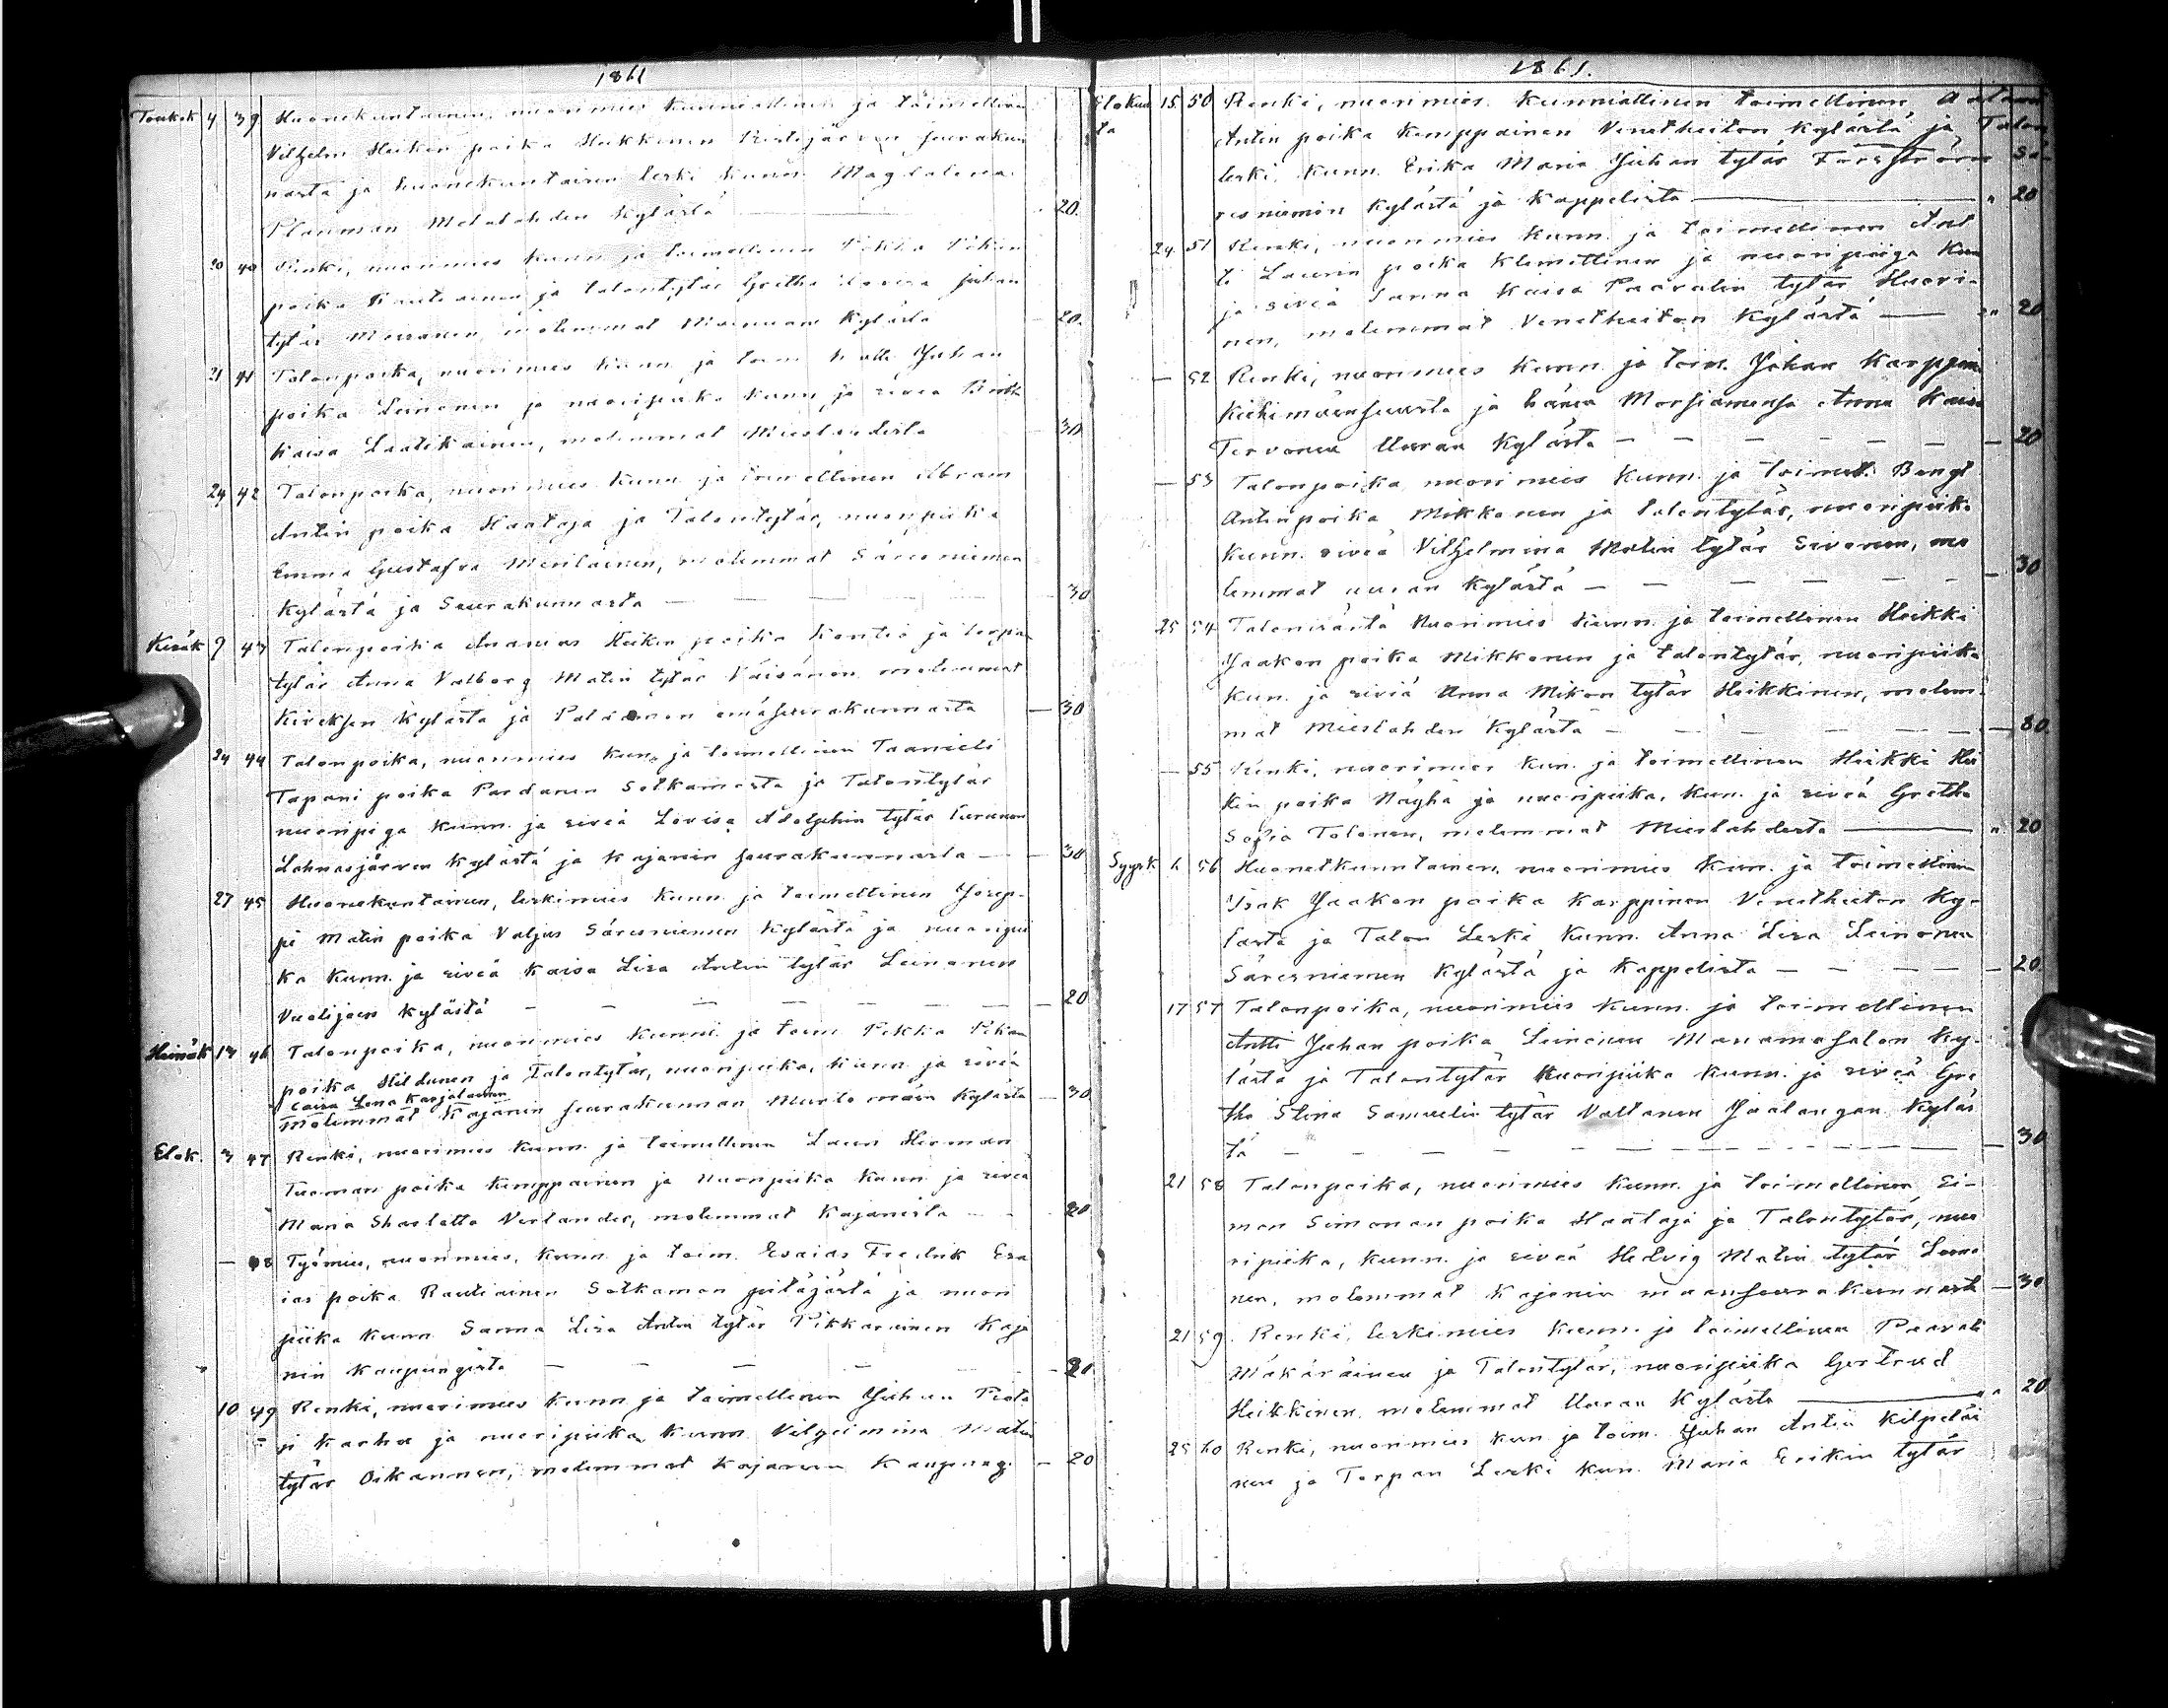 1861
Toukok 4 39 Huonekuntainen, nuorimies kunniallinen ja toimellinen
Vilhelm Heikin poika Heikkinen Ristijärven seurakun
nasta ja huonekuntaisen leski kunn. Magdalena
Planman Melalahden kylästä — 20.
20 40 Renki, nuorimies kunn. ja toimellinen Pekka Pekan
poika Rautiainen ja talontytär Gretha Lovisa Juhan
tytär Moisanen, molemmat kylästä — 20.
21 41 Talonpoika, nuorimies kunn. ja toim. Juhan
poika Leinonen ja nuoripiika kunn. ja siveä
Kaisa Laatikainen, molemmat Mieslahdesta — 30
24 42 Talonpoika, nuorimies kunn. ja toimellinen Abram
Antin poika Haataja ja Talontytär, nuoripiika
Emma Gustafva Meriläinen, molemmat Säresniemen
kylästä ja Seurakunnasta — 30
Kesäk 9 43 Talonpoika Ananias Heikin poika Kontio ja torpan
tytär Anna Valborg Matin tytär Väisänen molemmat
Kiveksen kylästä ja Paldamon emäseurakunnasta — 30
24 44 Talonpoika, nuorimies kun. ja toimellinen Taanieli
Tapani poika Pardanen Sotkamosta ja Talontytär
nuoripiga kunn. ja siveä Lovisa Adolphin tytär
Lahnasjärven kylästä ja Kajanin seurakunnasta — 30
27 45 Huonekuntainen, leskimies kunn. ja toimellinen Josep-
pi Matin poika Valjus Säresniemen kylästä ja nuoripii
ka kunn. ja siveä Kaisa Lisa Antin tytär Leinonen
Vuolijoen kylästä — — — — — — — 20
Heinäk 14 46 Talonpoika, nuorimies kunni. ja toim. Pekka Pekan
poika Hildunen ja Talontytär, nuoripiika, kunn. ja siveä
Caisa Lena Karjalainen
molemmat Kajanin seurakunnan Murtomäen kylästä — 30
Elok. 3 47 Renki, nuorimies kunn. ja toimellinen Lauri Herman
Tuoman poika Kemppainen ja nuoripiika kunn. ja siveä
Maria Sharlotta Verlander, molemmat Kajanista — 20
— 48 Työmies, nuorimies, kunn. ja toim. Esaias Fredrik Esa
ias poika Rautiainen Sotkamon pitäjästä ja nuori
piika kunn. Sanna Lisa Antin tytär Pikkarainen Kaja
nin kaupungista — — — — 20.
10 49 Renki, nuorimies kunn. ja toimellinen Juhan
pi Karhu ja nuoripiika kunn. Vilhelmina Matin
tytär Oikarinen, molemmat Kajanin kaupung. — 20
1861.
Elokuu 15 50 Renki, nuorimies kunniallinen toimellinen Adam
ta Antin poika Kemppainen Venetheiton kylästä ja Talon
leski kunn. Erika Maria Juhan tytär Forsström Sä-
resniemin kylästä ja Kappelista — " 20
24 51 Renki, nuorimies kunn. ja toimellinen Ant
ti Laurin poika Klemettinen ja nuoripiiga kun
ja siveä Sanna Kaisa Paavalin tytär Huovi-
nen, molemmat Venetheiton kylästä — " 20
— 52 Renki, nuorimies kunn. ja toim. Johan Karppin
Kiehimäensuusta ja hänen Morsiamensa Anna Kaisa
Tervonen Uuran kylästä — — — — — — 20
— 53 Talonpoika nuorimies kunn. ja toimel. Bengt
Antinpoika Mikkonen ja talontytär, nuoripiika
kunn. siveä Vilhelmina Matin tytär Sivonen, mo
lemmat uuran kylästä — — — — — — 30
25 54 Talonisäntä Nuorimies kunn. ja toimellinen Heikki
Jaakon poika Mikkonen ja talontytär, nuoripiika
kun. ja siviä Anna Mikon tytär Heikkinen, molem-
mat Mieslahden kylästä — — — — 30.
— 55 Renki, nuorimies kun. ja toimellinen Heikki Hei
kin poika Näyhä ja nuoripiika, kun. ja siveä Gretha
Sofia Tolonen, molemmat Mieslahdesta — " 20
Syysk 1 56 Huonetkunntainen, nuorimies kun. ja toimellinen
Isak Jaakon poika Karppinen Venetheiton ky-
lästä ja Talon Leski kunn. Anna Lisa Leinonen
Säresniemen kylästä ja Kappelista — — — — 20
17 57 Talonpoika, nuorimies kunn. ja toimellinen
Antti Juhan poika Leinonen Manamasalon ky-
lästä ja Talontytär Nuoripiika kunn. ja siveä Gre
tha Stina Samuelin tytär Valtanen Jaalangan kyläs
tä — — — — — — — — 30
21 58 Talonpoika, nuorimies kunn. ja toimellinen Si-
mon Simonan poika Haataja ja Talontytär, nuo
ripiika, kunn. ja siveä Hedvig Matin tytär Leino
nen, molemmat Kajanin maanseurakunnasta — 30
21 59. Renki, leskimies kunn. ja toimellinen Paavali
Mäkäräinen ja Talontytär, nuoripiika Gertrud
Heikkinen molemmat Uuran kylästä — " 20
25 60 Renki, nuorimies kun. ja toim. Juhan Antin Kilpeläi
nen ja Torpan Leski kun. Maria Erikin tytär